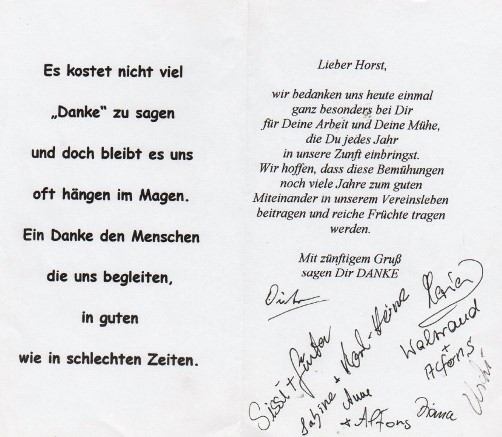 Es kostet nicht viel
„Danke" zu sagen
und doch bleibt es uns
oft hängen im Magen.
Ein Danke den Menschen
die uns begleiten,
in guten
wie in schlechten Zeiten.
Lieber Horst,
wir bedanken uns heute einmal
ganz besonders bei Dir
für Deine Arbeit und Deine Mühe,
die Du jedes Jahr
in unsere Zunft einbringst.
Wir hoffen, dass diese Bemühungen
noch viele Jahre zum guten
Miteinander in unserem Vereinsleben
beitragen und reiche Früchte tragen
werden.
Mit zünftigem Gruß
sagen Dir DANKE
Sissi + Günter
Sabine + Karl-Heinz
Anne
+ Alfons
Maria
Waltraud
+
Alfons
Diana